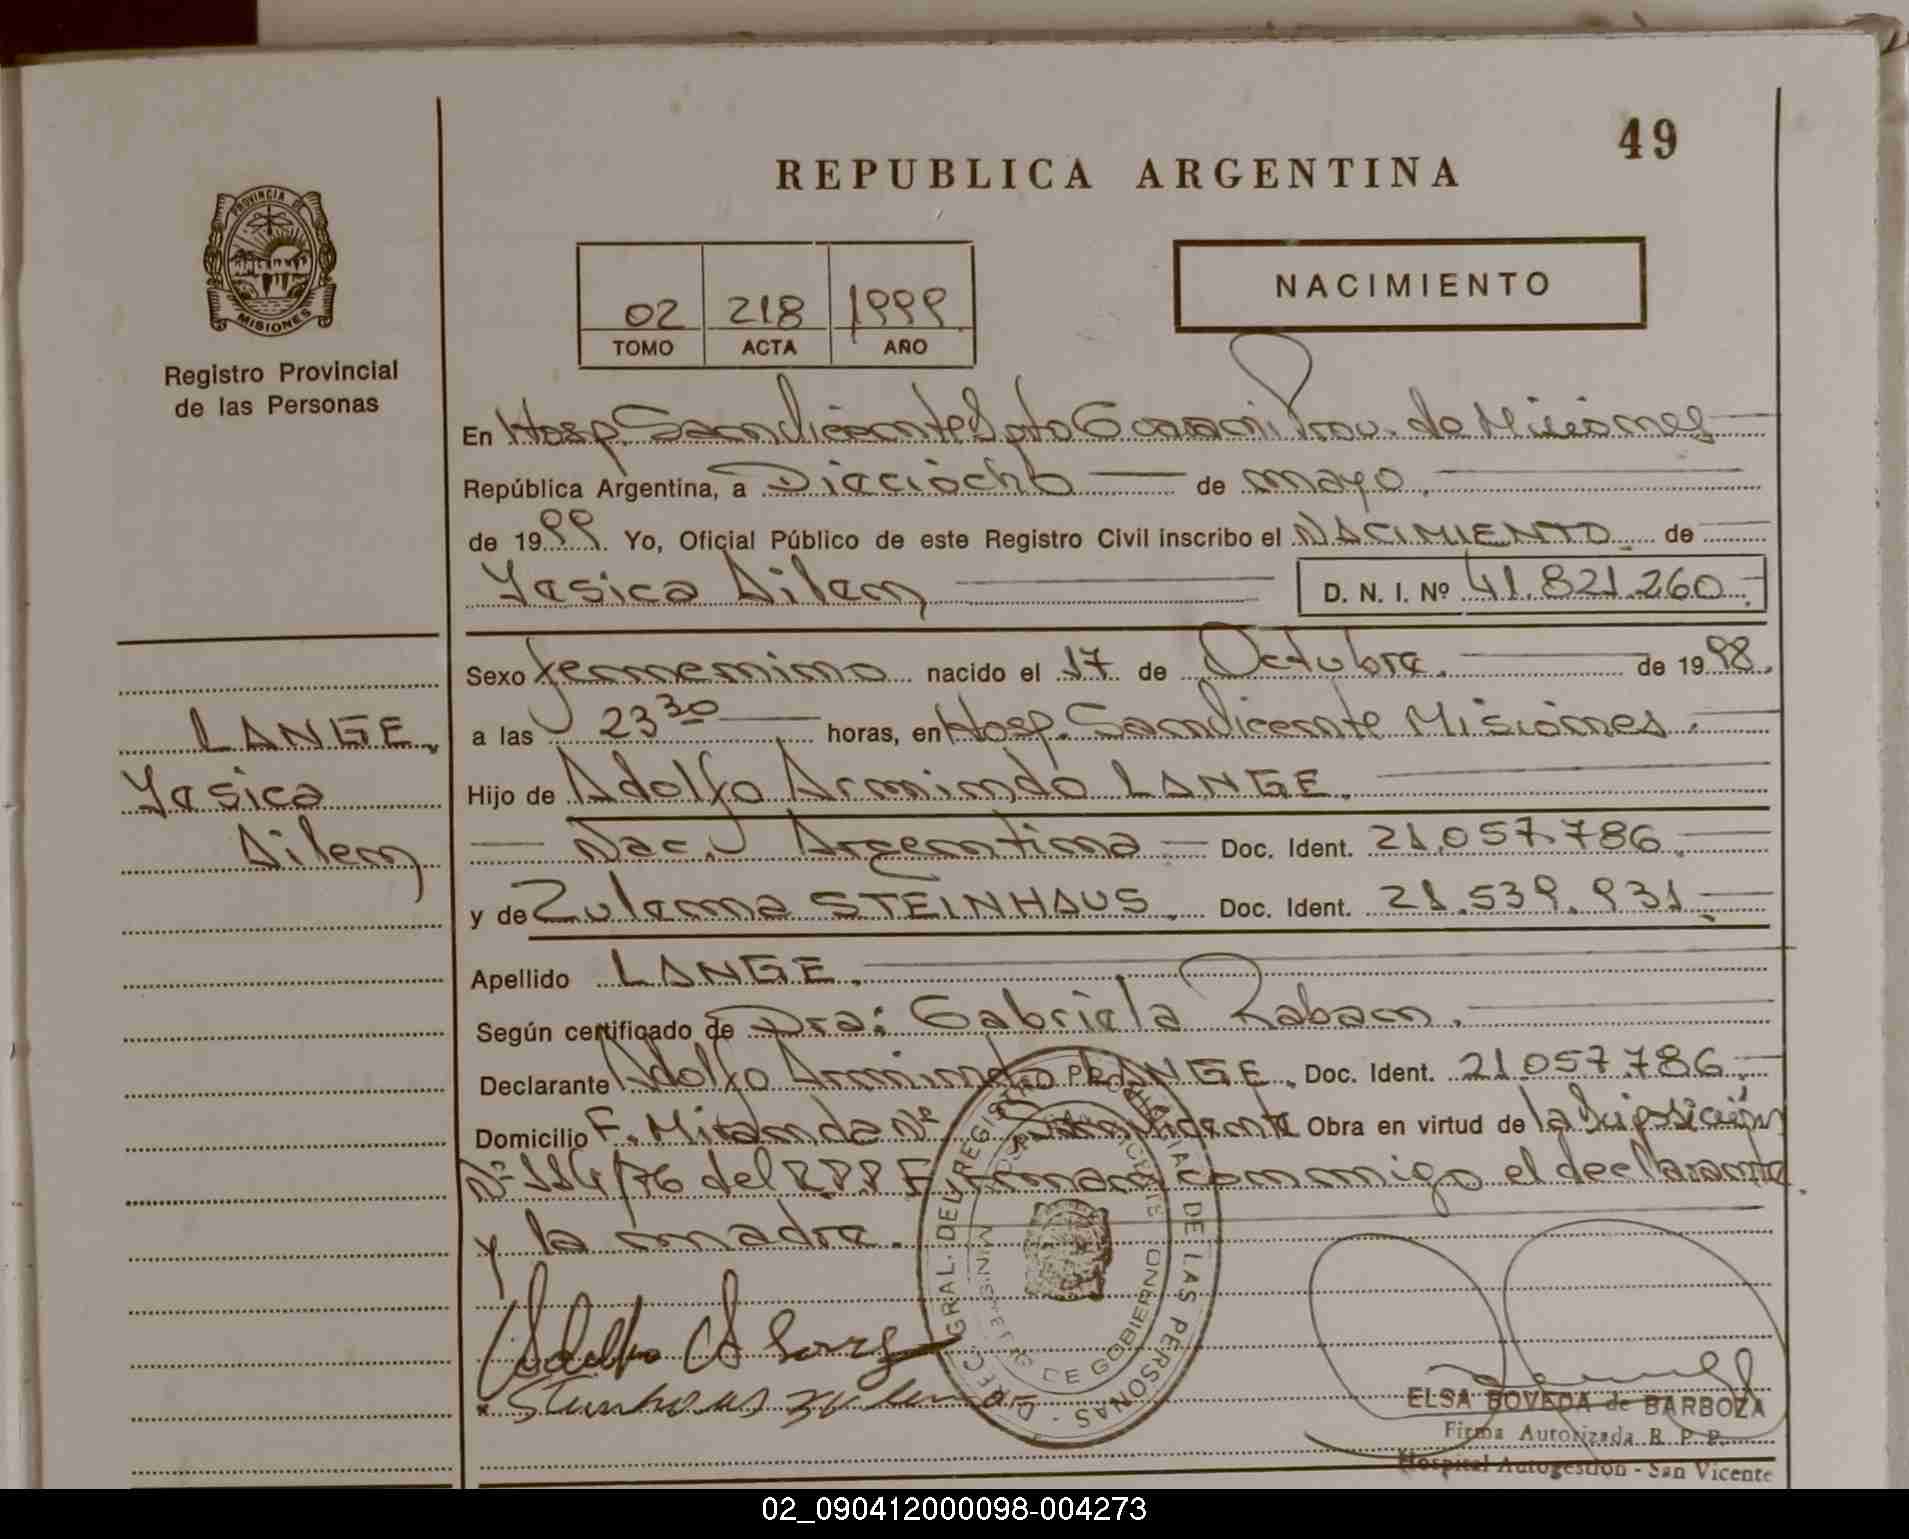 49
REPUBLICA ARGENTINA
PROVINCIA DE
MISIONES
Registro Provincial
de las Personas
02 218 1999
TOMO ACTA AÑO
NACIMIENTO
En Hosp. San Vicente Dpto Guarani Prov. de Misiones
República Argentina, a Dieciocho de mayo.
de 1999. Yo, Oficial Público de este Registro Civil inscribo el NACIMIENTO de
Yesica Ailen D. N. I. Nº 41.821.260
Sexo femenino nacido el 17 de Octubre. de 1998.
a las 23 30 horas, en Hosp. San Vicente Misiones.
Hijo de Adolfo Armindo LANGE.
Nac. Argentina Doc. Ident. 21.057.786.
y de Zulema STEINHAUS. Doc. Ident. 21.539.931.
Apellido LANGE.
Según certificado de Dra: Gabriela Raban.
Declarante Adolfo Armindo LANGE. Doc. Ident. 21.057.786.
Domicilio F. Miranda Nº San Vicente Obra en virtud de la Disposición
Nº 114/76 del R.P.P Firmará conmigo el declarante
y la madre.
LANGE,
Yesica
Ailen
DIREC. GRAL. DEL REGISTRO PROVINCIAL DE LAS PERSONAS
MINISTERIO DE GOBIERNO
Steinhaus Zulema
ELSA BOVEDA de BARBOZA
Firma Autorizada R. P. P.
Hospital Autogestión - San Vicente
02_090412000098-004273